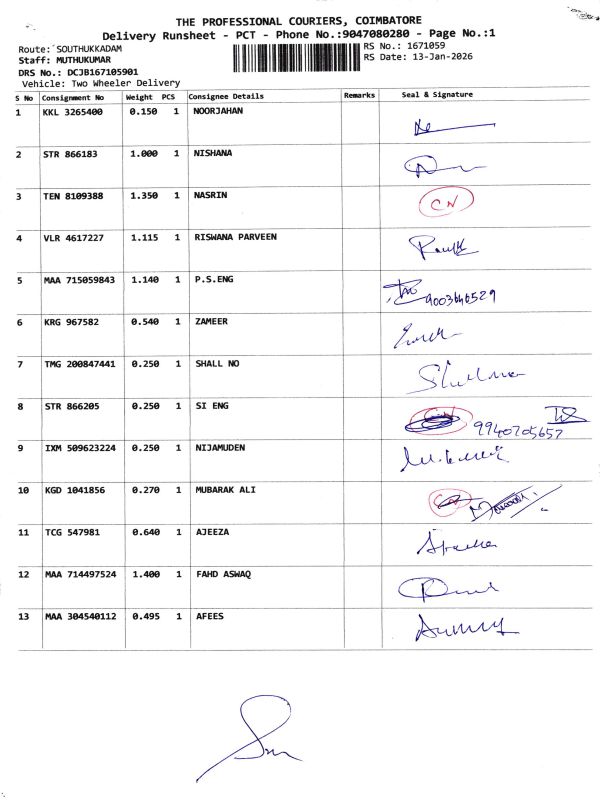 THE PROFESSIONAL COURIERS, COIMBATORE
Delivery Runsheet - PCT - Phone No.:9047080280 - Page No.:1
Route: SOUTHUKKADAM
RS No.: 1671059
Staff: MUTHUKUMAR
RS Date: 13-Jan-2026
DRS No.: DCJB167105901
Vehicle: Two Wheeler Delivery
S No Consignment No Weight PCS Consignee Details Remarks Seal & Signature
1 KKL 3265400 0.150 1 NOORJAHAN
2 STR 866183 1.000 1 NISHANA
3 TEN 8109388 1.350 1 NASRIN CN
4 VLR 4617227 1.115 1 RISWANA PARVEEN
5 MAA 715059843 1.140 1 P.S.ENG 9003646529
6 KRG 967582 0.540 1 ZAMEER
7 TMG 200847441 0.250 1 SHALL NO
8 STR 866205 0.250 1 SI ENG CN 9940705657
9 IXM 509623224 0.250 1 NIJAMUDEN
10 KGD 1041856 0.270 1 MUBARAK ALI CN
11 TCG 547981 0.640 1 AJEEZA
12 MAA 714497524 1.400 1 FAHD ASWAQ
13 MAA 304540112 0.495 1 AFEES